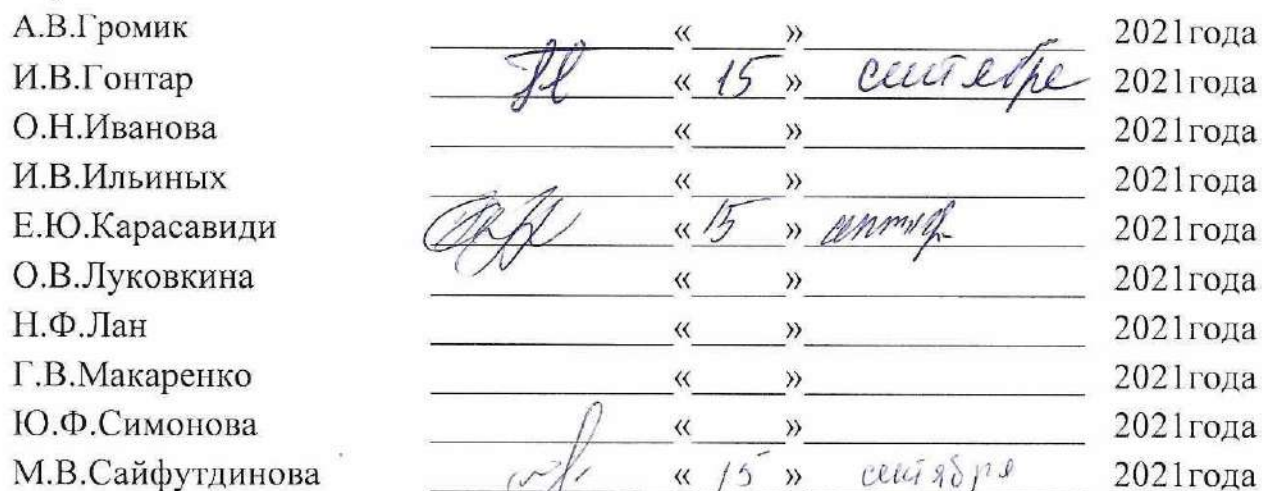 А.В.Громик « » 2021года
И.В.Гонтар « 15 » сентября 2021года
О.Н.Иванова « » 2021года
И.В.Ильиных « » 2021года
Е.Ю.Карасавиди « 15 » 2021года
О.В.Луковкина « » 2021года
Н.Ф.Лан « » 2021года
Г.В.Макаренко « » 2021года
Ю.Ф.Симонова « » 2021года
М.В.Сайфутдинова « 15 » сентября 2021года